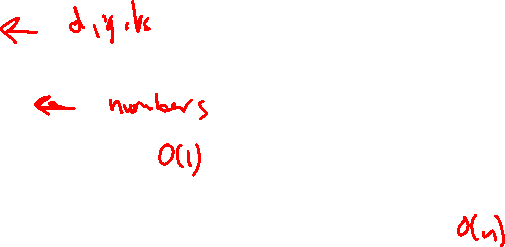 ← digits
← numbers
O(1)
O(n)